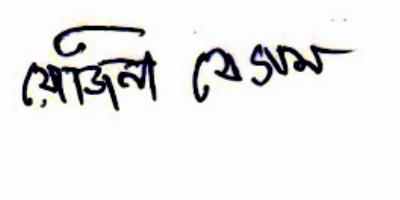 রোজিনা বেগম